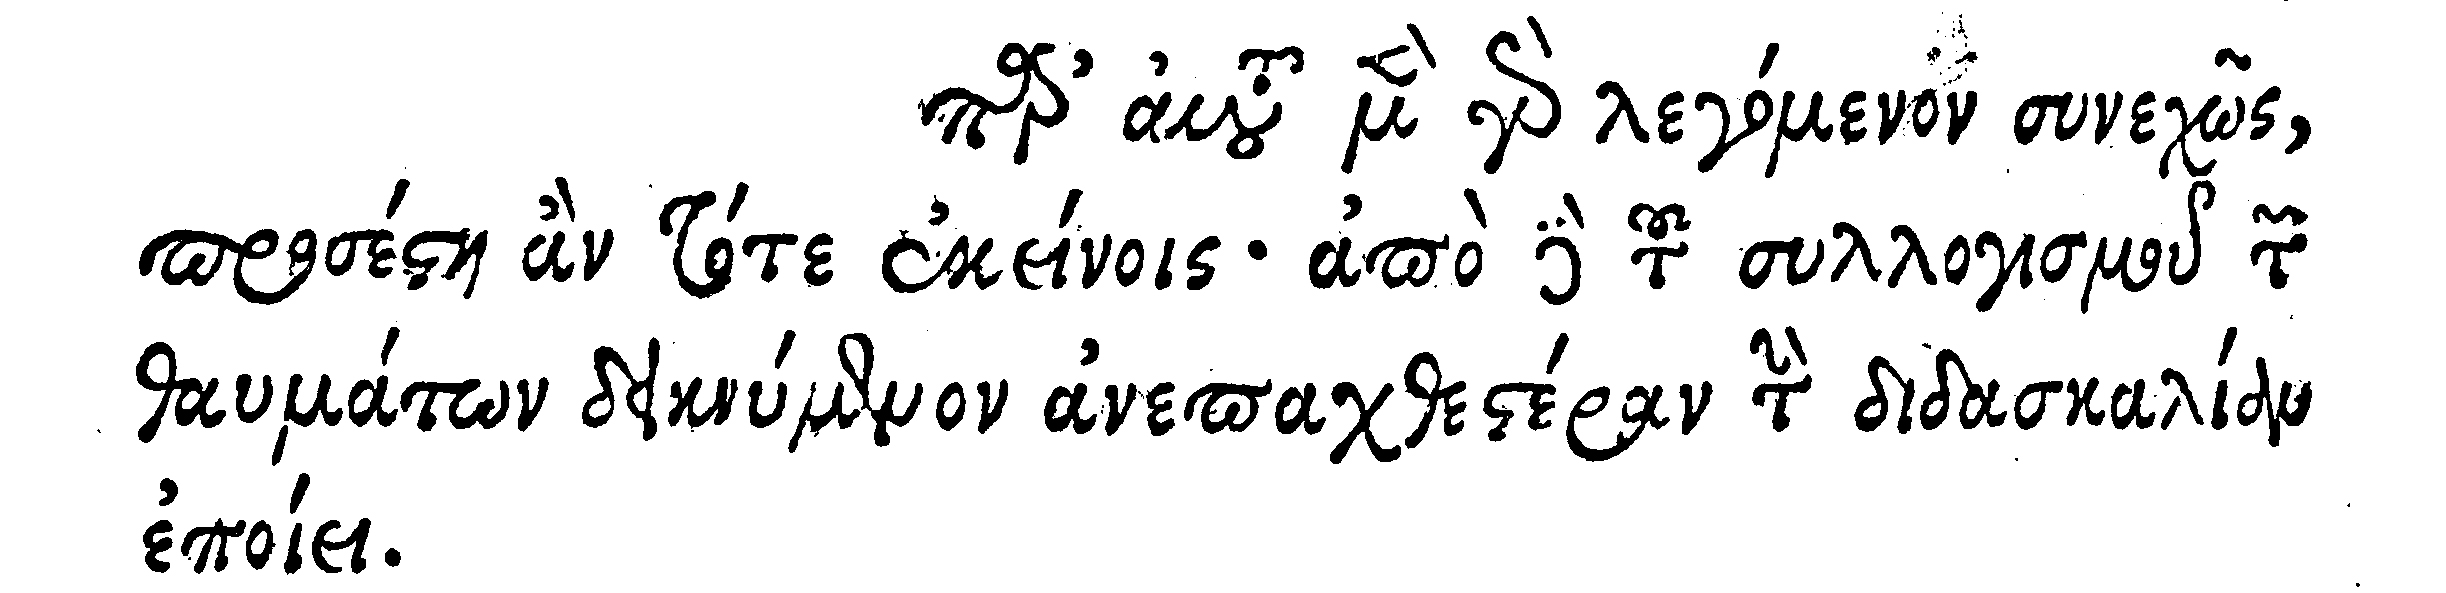 παρ' αὐτοῦ μὲν γὰρ λεγόμενον συνεχῶς,
προσέστη ἂν τότε ἐκείνοις· ἀπὸ δὲ τοῦ συλλογισμοῦ τῶν
θαυμάτων δεικνύμενον ἀνεπαχθεστέραν τὴν διδασκαλίαν
ἐποίει.